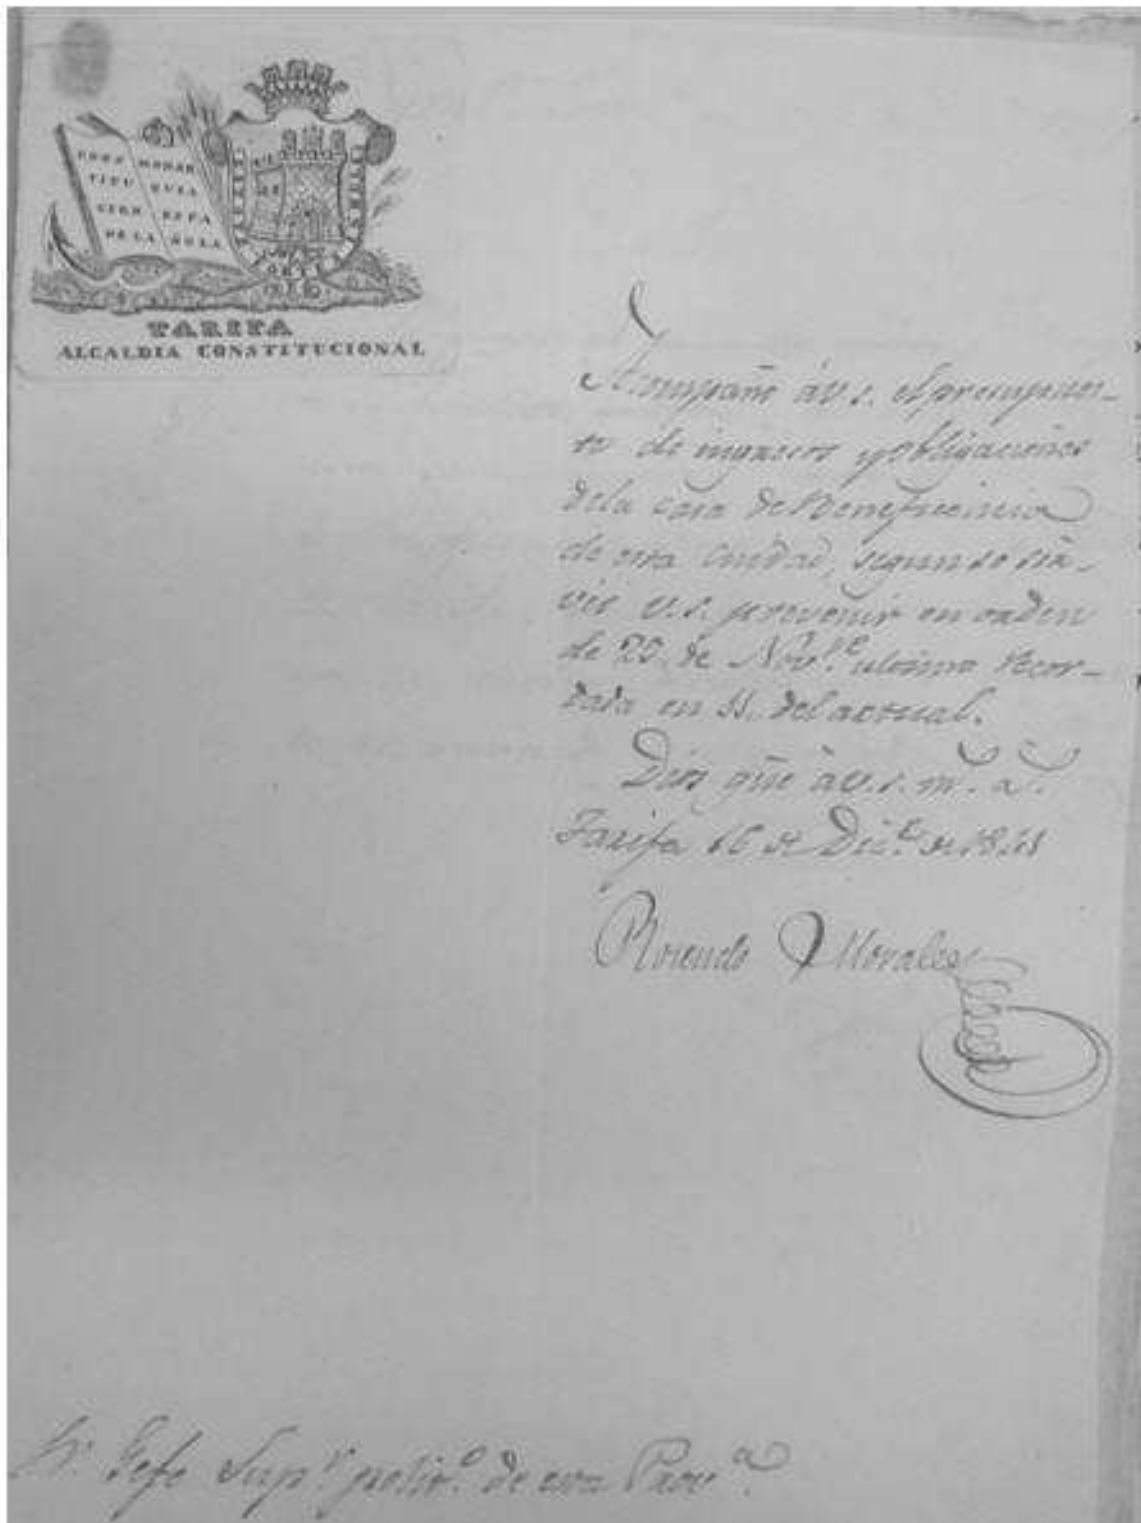 CONS MONAR
TITU QUIA
CION ESPA
DE LA ÑOLA
TARIFA
ALCALDIA CONSTITUCIONAL
Acompaño á V.S. el presupues-
to de ingresos y obligaciones
dela casa de Beneficencia
de esta Ciudad, segun se sir-
vió V.S. prevenir en orden
de 20. de Nov.e ultimo recor-
dada en 11. del actual.
Dios gue á V.S. m.s a.s
Tarifa 16 de Dic.e de
Rosendo Morales
Sr. Gefe Sup.r polit.o de esta Prov.a